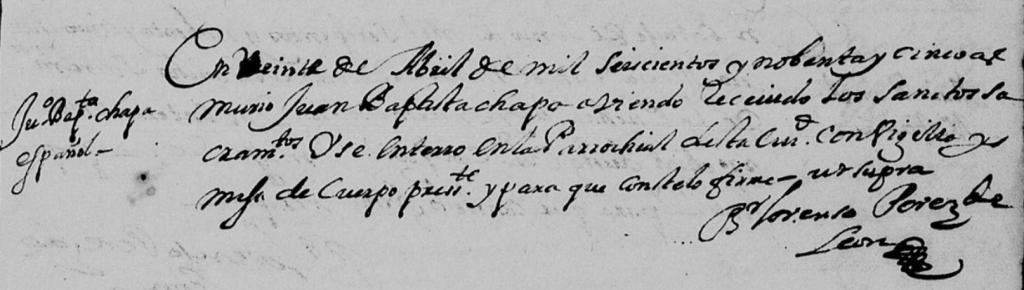 Ju.º Bap.ta chapa
español –
En Veinte de Abril de mil seiscientos y nobenta y cinco as
murio Juan Baptista chapa aviendo recevido los sanctos sa
cram.tos Y se enterro en la Parrochial desta Ciu.d con Vigilia y
misa de Cuerpo pres.te y para que conste lo firme – ut supra
B.r Lorenso Perez de
Leon